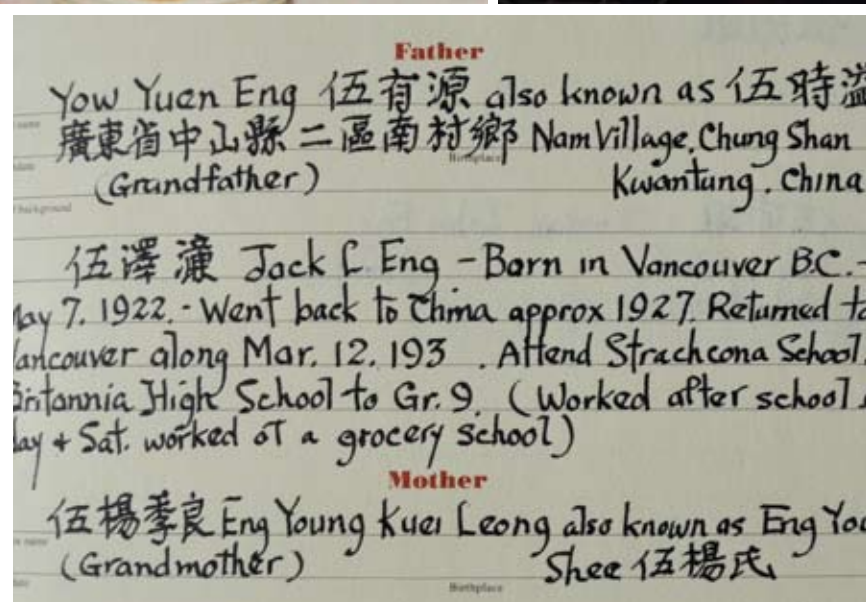 Father
Yow Yuen Eng 伍有源 also known as 伍時
廣東省中山縣二區南村鄉 Nam Village, Chung Shan
Birthplace
(Grandfather) Kwantung, China
background
伍澤濂 Jack L Eng - Born in Vancouver B.C. -
May 7. 1922. - Went back to China approx 1927. Returned to
Vancouver along Mar. 12. 193 . Attend Strachcona School,
Britannia High School to Gr. 9. (Worked after school
day + Sat. worked at a grocery school)
Mother
伍楊季良 Eng Young Kuei Leong also known as Eng
name
(Grandmother) Shee 伍楊氏
Birthplace